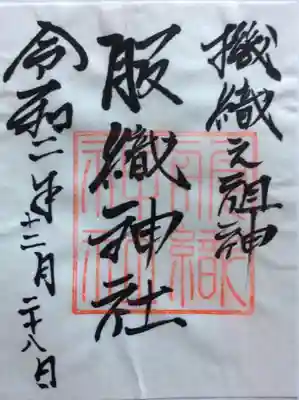 機織之祖神
服織神社
令和二年十二月二十八日